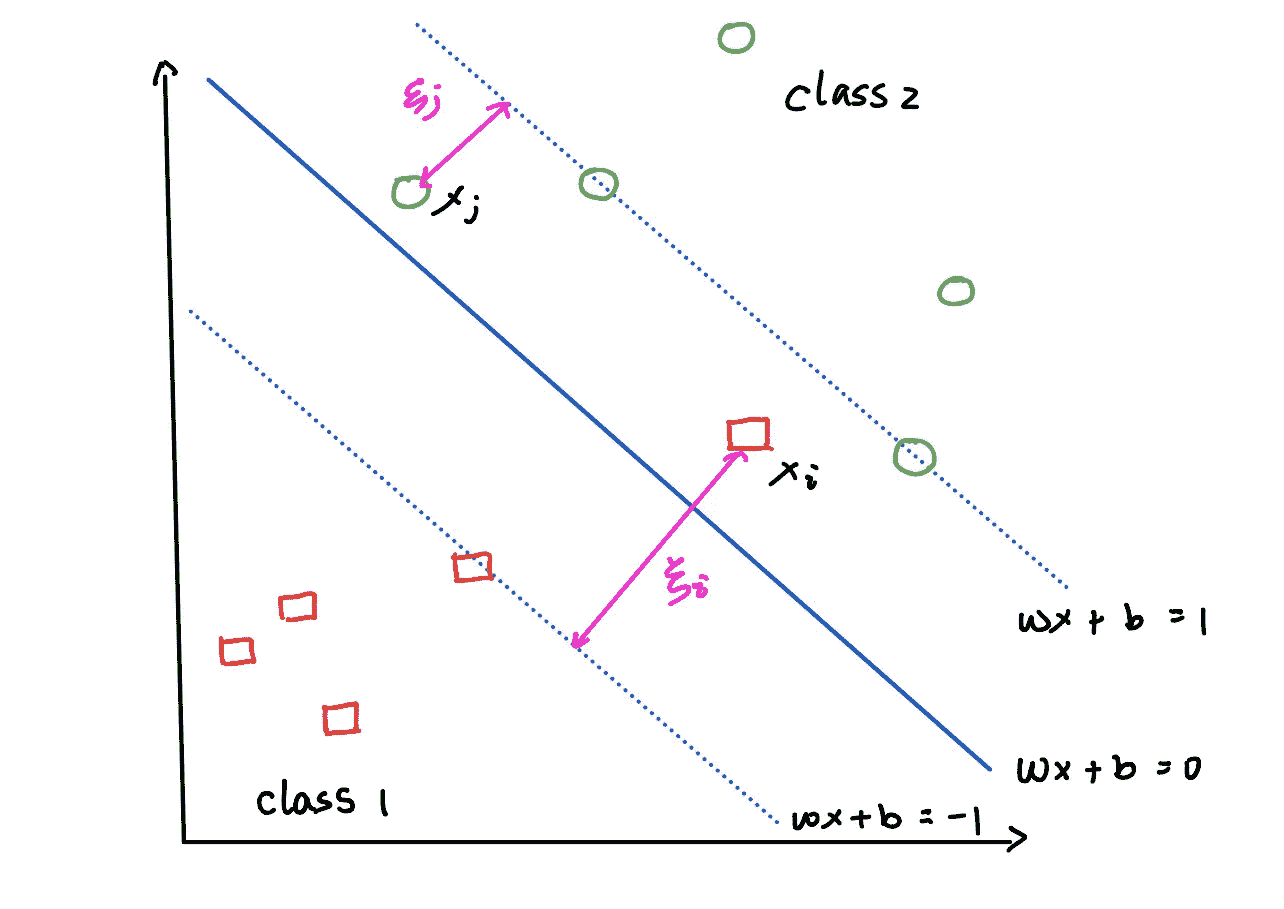 class 2
ξj
xj
xi
ξi
wx + b = 1
wx + b = 0
class 1
wx + b = -1